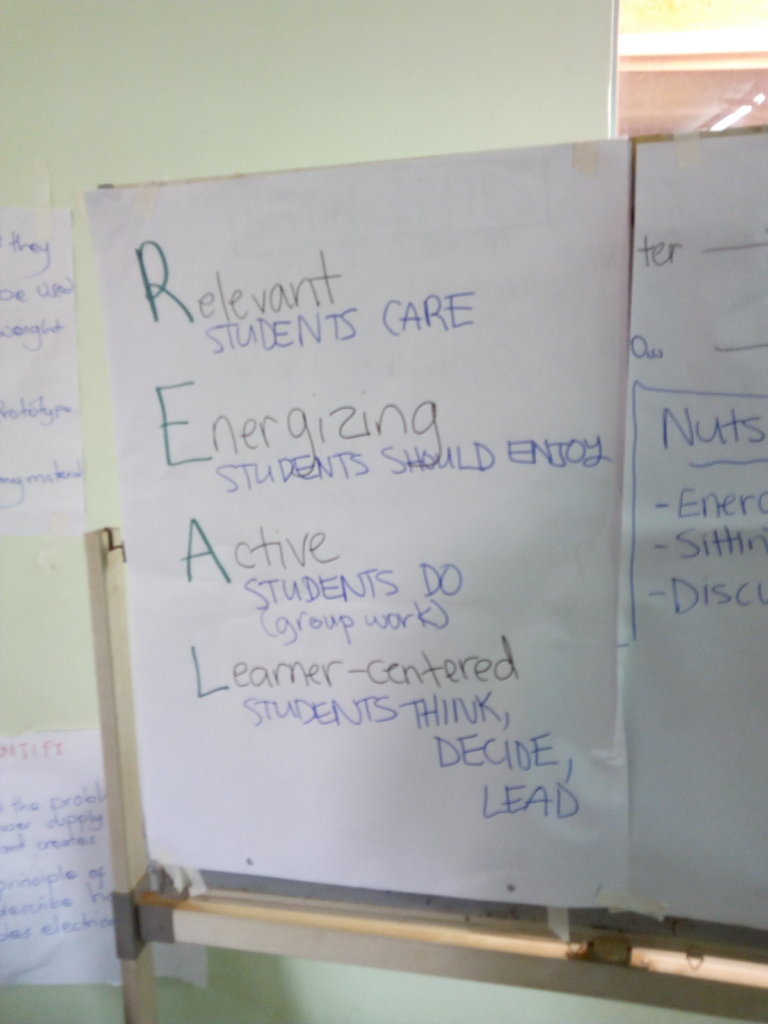 Relevant
STUDENTS CARE
Energizing
STUDENTS SHOULD ENJOY
Active
STUDENTS DO
(group work)
Learner-centered
STUDENTS THINK,
DECIDE,
LEAD
they
be used
weight
Prototype
material
NTIFY
the probl
supply
and creates
principle of
describe h
electric
ter
Nuts
- Energ
- Sittin
- Discu